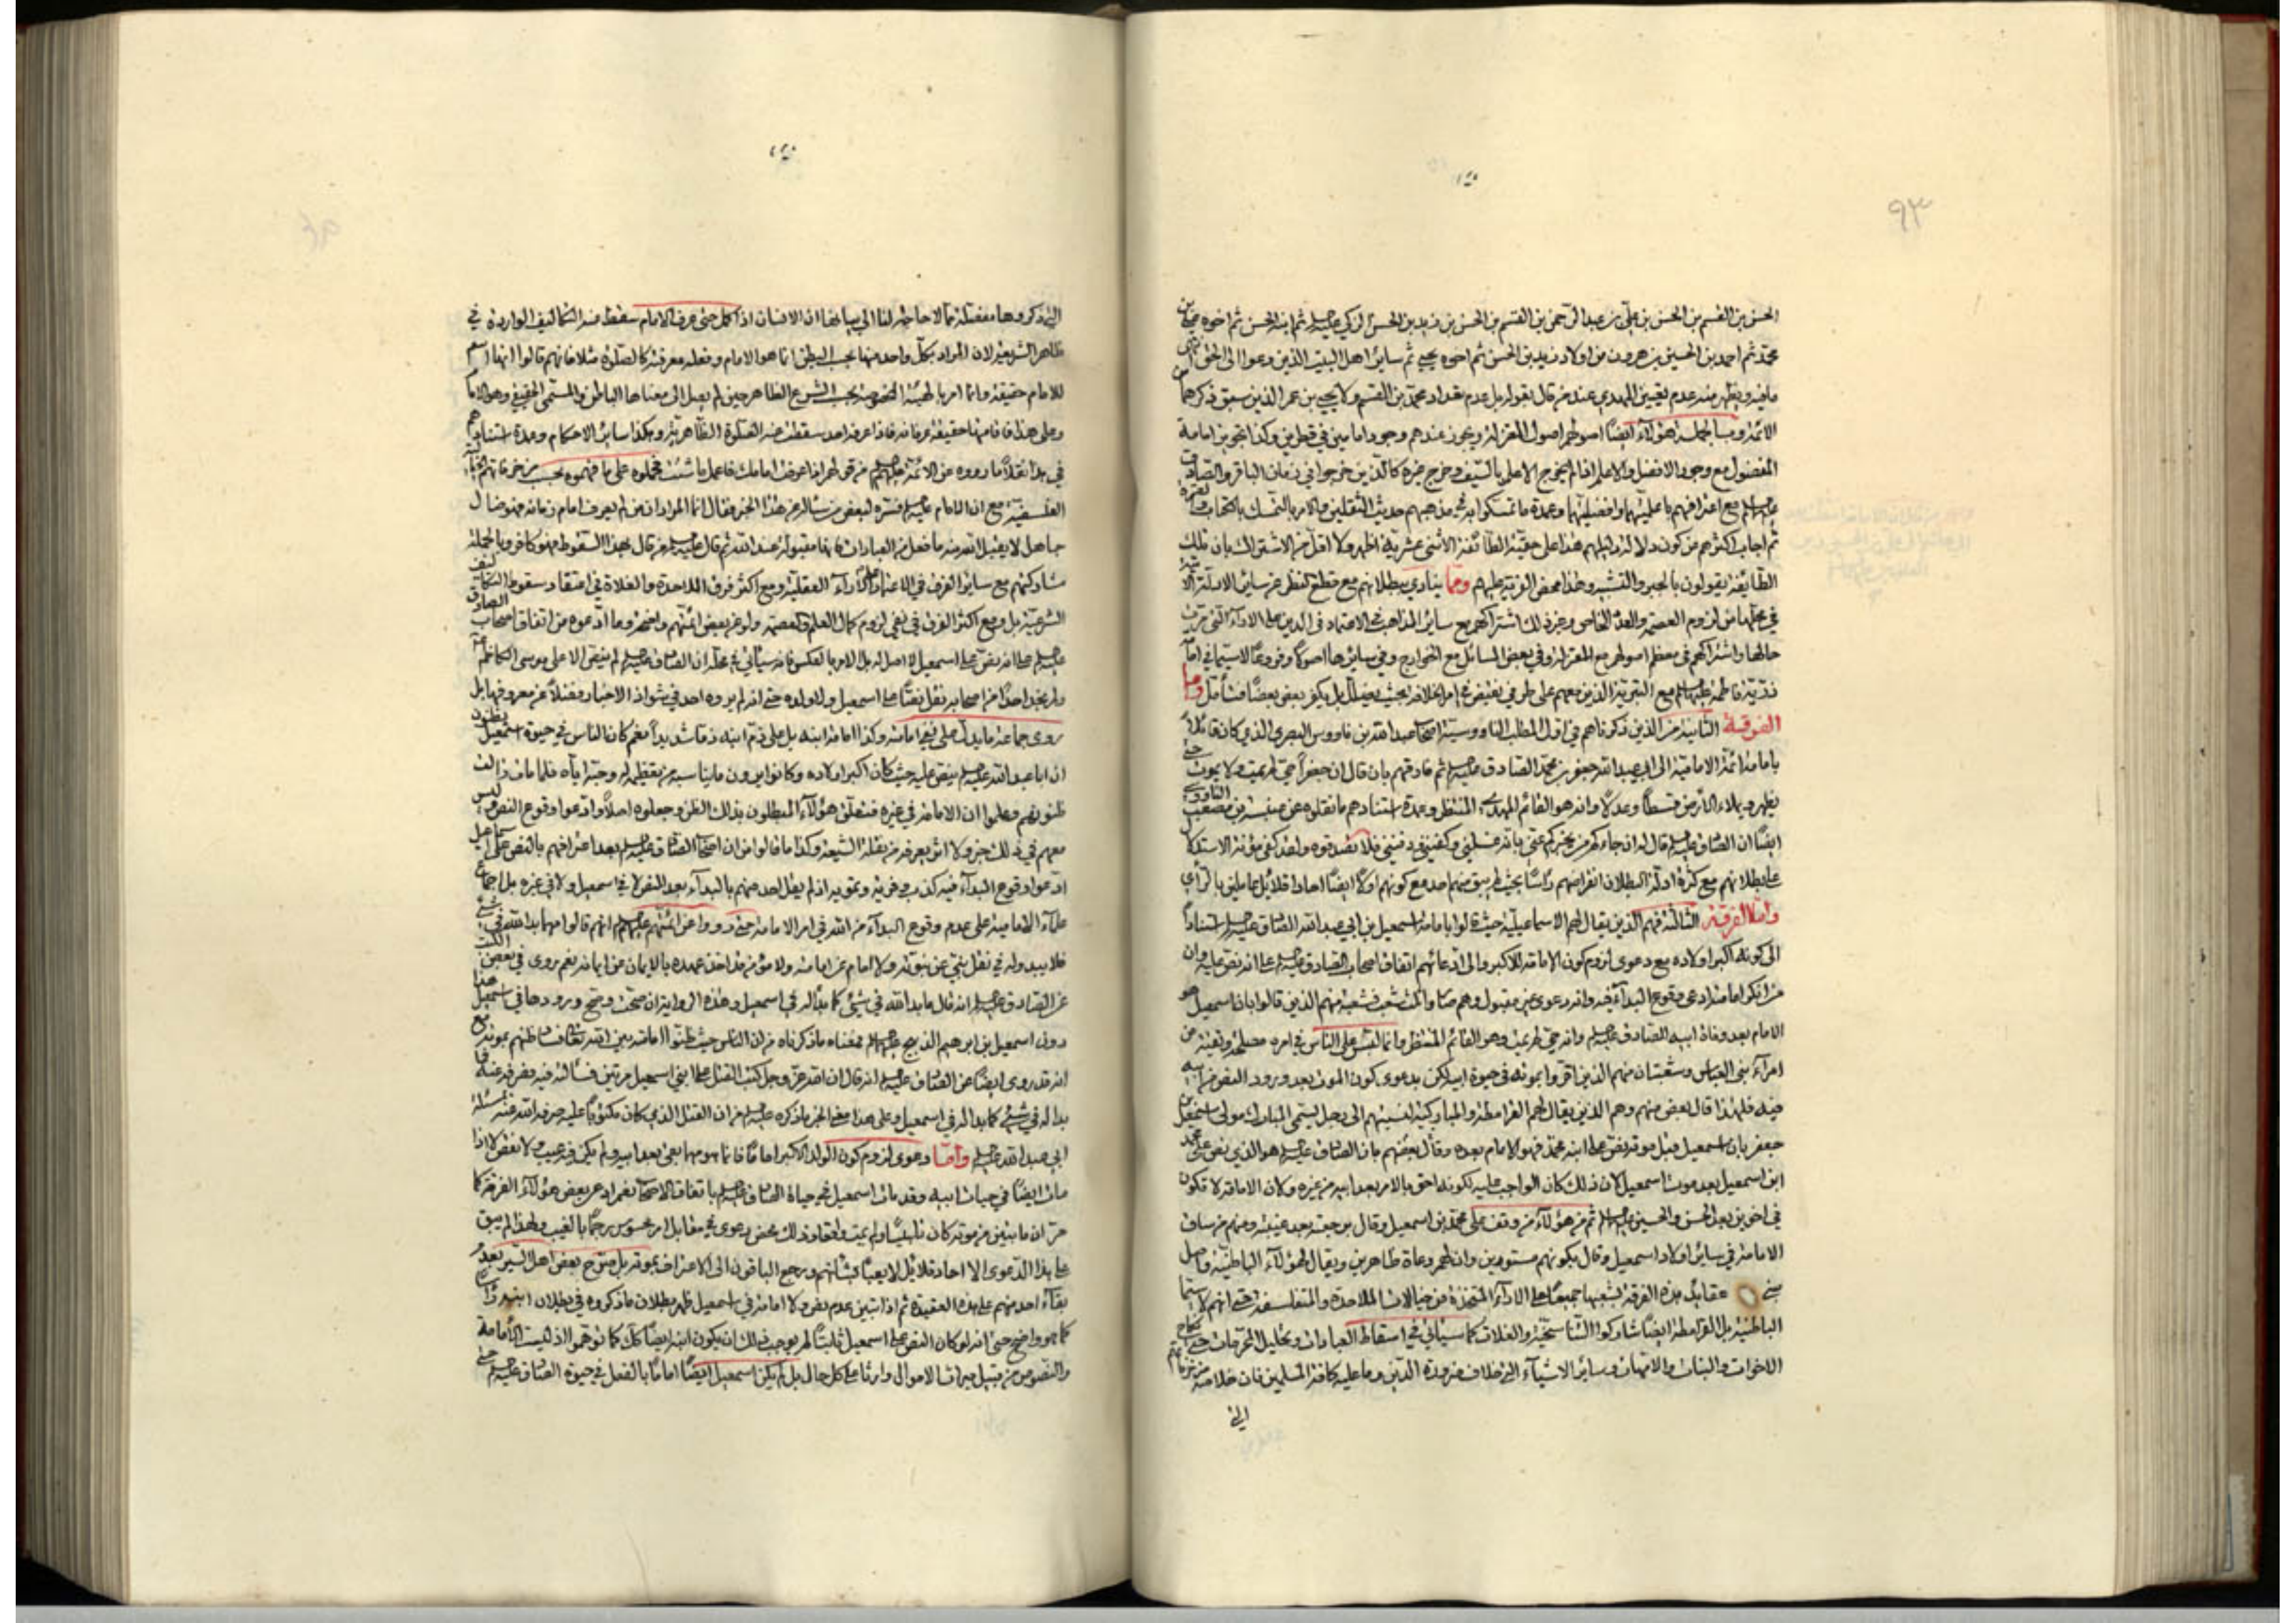 ٩٣
الحسن بن القسم بن الحسن بن علي بن عبد الرحمن بن القسم بن الحسن بن زيد بن الحسن الزكي عليه السلم ثم ابنه الحسن ثم اخوه
محمد ثم احمد بن الحسين بن هرون من اولاد زيد بن الحسن ثم اخوه يحيى ثم ساير اهل البيت الذين دعوا الى الحق
ما فيه ويظهر منه عدم تعيين المهدي عند من قال بقوله بل عدم تعداد محمد بن القسم ولا يحيى بن عمر الذين سبق ذكرهما من
الائمة وبالجملة هؤلاء ايضا اصولهم اصول المعتزلة ويجوز عندهم وجود امامين في قطرين وكذا تجويز امامة
المفضول مع وجود الافضل والاعلم اذا لم يخرج الاعلم بالسيف وخرج غيره كالذين خرجوا في زمان الباقر والصادق
عليهما السلم مع اعترافهم باعلميتهما وافضليتهما وعمدة ما تمسكوا به في مذهبهم حديث الثقلين والامر بالتمسك بالكتاب والعترة
ثم اجاب اكثرهم من كون دلالة دليلهم هذا على حقية الطائفة الاثنى عشرية اظهر ولا اقل من الاشتراك بان تلك
الطائفة يقولون بالجبر والتشبيه وهذا محض الفرية عليهم ومما ينادي ببطلانهم مع قطع النظر عن ساير الادلة
في محلها من لزوم العصمة والعلم الخاص وغير ذلك اشتراكهم مع ساير المذاهب في الاعتماد في الدين على الاراء التي عرفت
حالها واشتراكهم في معظم اصولهم مع المعتزلة وفي بعض المسائل مع الخوارج وفي سايرها اصولا وفروعا لا سيما في
ذرية فاطمة عليها السلم مع البترية الذين معهم على طرفي نقيض في امر الخلافة بحيث يضلل بل يكفر بعض بعضا فتأمل واما
الفرقة الثانية من الذين ذكرناهم في اول المطلب الناووسية اصحاب عبد الله بن ناووس البصري الذي كان قائلا
بامامة ائمة الامامية الى ابي عبد الله جعفر بن محمد الصادق عليه السلم ثم فارقهم بان قال ان جعفرا حي لم يمت ولا يموت حتى
يظهر ويملاء الارض قسطا وعدلا وانه هو القائم المهدي المنتظر وعمدة استنادهم ما نقلوه عن عنبسة بن مصعب
ايضا ان الصادق عليه السلم قال له ان جاءكم من يخبركم عني بانه غسلني وكفنني ودفنني فلا تصدقوه ولقد كفى مؤنة الاستدلال
على بطلانهم مع كثرة ادلة البطلان انقراضهم راسا بحيث لم يبق منهم احد مع كونهم اولا ايضا احادا قلائل عاملين بالرأي
واما الفرقة الثالثة فهم الذين يقال لهم الاسماعيلية حيث قالوا بامامة اسمعيل بن ابي عبد الله الصادق عليه السلم استنادا
الى كونه اكبر اولاده مع دعوى لزوم كون الامامة للاكبر والى ادعائهم اتفاق اصحاب الصادق عليه السلم على انه نص عليه وان
من انكر امامته ادعى وقوع البداء فيه وانه دعوى غير مقبول وهم صاروا ثلث شعب فشعبة منهم الذين قالوا بان اسمعيل هو
الامام بعد وفاة ابيه الصادق عليه السلم وانه حي لم يمت وهو القائم المنتظر وانما التبس على الناس في امره مصلحة وتقية من
امراء بني العباس وشعبتان منهم الذين اقروا بموته في حيوة ابيه لكن بدعوى كون الموت بعد ورود النص من ابيه
فيه فلهذا قال بعض منهم وهم الذين يقال لهم القرامطة والمباركية لنسبتهم الى رجل يسمى المبارك مولى اسمعيل بن
جعفر بان اسمعيل قبل موته نص على ابنه محمد فهو الامام بعده وقال بعضهم بان الصادق عليه السلم هو الذي نص على محمد
ابن اسمعيل بعد موت اسمعيل لان ذلك كان الواجب عليه لكونه احق بالامر بعد ابيه من غيره ولان الامامة لا تكون
في اخوين بعد الحسن والحسين عليهما السلم ثم من هؤلاء من وقف على محمد بن اسمعيل وقال برجعته بعد غيبته ومنهم من ساق
الامامة في ساير اولاد اسمعيل وقال بكونهم مستورين وان لهم دعاة ظاهرين ويقال لهؤلاء الباطنية واصل
عقايد هذه الفرقة بشعبها جميعا على الاراء المتخذة من خيالات الملاحدة والمتفلسفة حتى انهم لا سيما
الباطنية بل القرامطة ايضا شاركوا التناسخية والغلاة كما سيأتي في اسقاط العبادات وتحليل المحرمات حتى نكاح
الاخوات والبنات والامهات وساير الاشياء التي خلاف ضرورة الدين وما عليه كافة المسلمين فان خلاصة
التي
التي ذكروها مفصلة مما لا حاجة لنا الى بيانها ان الانسان اذا كمل حتى عرف الامام سقط عنه التكاليف الواردة في
ظاهر الشريعة لان المراد بكل واحد منها بحسب البطن انما هو الامام وفعله معرفته كالصلوة مثلا فانهم قالوا انها اسم
للامام حقيقة وانما امر بالهيئة المخصوصة بحسب الشرع الظاهر حين لم يصل الى معناها الباطن والمسمى الحقيقي وهو الامام
وعلى هذا فاقامتها حقيقة عرفانه فاذا عرفه احد سقطت عنه الصلوة الظاهرية وهكذا ساير الاحكام وعمدة استنادهم
في هذا نقلا ما رووه عن الائمة عليهم السلم من قولهم اذا عرفت امامك فاعمل ما شئت فحملوه على ما فهموه بحسب
الفلسفية مع ان الامام عليه السلم فسره لبعض من سأله عن هذا الخبر فقال انما المراد ان من لم يعرف امام زمانه فهو ضال
جاهل لا يقبل الله منه ما فعل من العبادات فانها مقبولة عند الله ثم قال عليه السلم من قال بهذا السقوط فهو كافر وبالجملة
مشاركتهم مع ساير الفرق في الاعتماد على الاراء العقلية ومع اكثر فرق الملاحدة والغلاة في اعتقاد سقوط التكاليف
الشرعية بل ومع اكثر الفرق في نفي لزوم كمال العلم والعصمة ولو عن بعض ائمتهم واضحة وما ادعوه من اتفاق اصحاب الصادق
عليه السلم على انه نص على اسمعيل لا اصل له بل الامر بالعكس فانه سيأتي في محله ان الصادق عليه السلم لم ينص الا على موسى الكاظم
ولم نجد احدا من اصحابه نقل نصا على اسمعيل ولا ولده حتى انه لم يروه احد في شواذ الاخبار فضلا عن معروفها بل
روى جماعة ما يدل على نفي امامته وكذا امامة ابنه بل على ذم ابنه ذما شديدا نعم كان الناس في حيوة اسمعيل يظنون
ان ابا عبد الله عليه السلم ينص عليه حيث كان اكبر اولاده وكانوا يرون ما يناسبه من تعظيمه له وحبه اياه فلما مات زالت
ظنونهم وعلموا ان الامامة في غيره فتعلق هؤلاء المبطلون بذلك الظن وجعلوه اصلا وادعوا وقوع النص وليس
معهم في ذلك خبر ولا اثر يعرفه من نقلة الشيعة وكذا ما قالوا من ان اصحاب الصادق عليه السلم بعد اعترافهم بالنص على اسمعيل
ادعوا وقوع البداء فيه كذب وفرية وتمويه اذ لم يقل احد منهم بالبداء بعد النص لا في اسمعيل ولا في غيره بل اجماع
علماء الامامية على عدم وقوع البداء من الله في امر الامامة حتى رووا عن ائمتهم عليهم السلم انهم قالوا مهما بدا لله في شيء
فلا يبدو له في نقل نبي عن نبوته ولا امام عن امامته ولا مؤمن قد اخذ عهده بالايمان من ايمانه نعم روى في بعض الكتب
عن الصادق عليه السلم انه قال ما بدا لله في شيء كما بدا له في اسمعيل وهذه الرواية ان صحت وصح ورودها في اسمعيل هذا
دون اسمعيل بن ابرهيم الذبيح عليهما السلم فمعناه ما ذكرناه من ان الناس حيث ظنوا امامته بين الله تعالى فساد ظنهم بموته مع
انه قد روى ايضا عن الصادق عليه السلم انه قال ان الله عز وجل كتب القتل على ابني اسمعيل مرتين فسألته فيه فصرفه عنه فما
بدا له في شيء كما بدا له في اسمعيل وعلى هذا معنى الخبر ما ذكره عليه السلم من ان القتل الذي كان مكتوبا عليه صرفه الله عنه بمسئلة
ابي عبد الله عليه السلم واما دعوى لزوم كون الولد الاكبر اماما فانما هو مهما بقي بعد ابيه ولم يكن فيه عيب ولا نقص لا اذا
مات ايضا في حيات ابيه وقد مات اسمعيل في حياة الصادق عليه السلم باتفاق الاصحاب نعم ادعى بعض هؤلاء الفرقة كما
مر ان ما تبين من موته كان تلبيسا ولم يمت واقعا وذلك محض دعوى في مقابل امر محسوس رجما بالغيب ولهذا لم يبق
على هذا الدعوى الا احاد قلائل لا يعبأ بشأنهم ورجع الباقون الى الاعتراف بموته بل صرح بعض اهل السير بعدم
بقاء احد منهم على هذه العقيدة ثم اذا تبين عدم نص ولا امامة في اسمعيل ظهر بطلان ما ذكروه في بطلان ابنه راسا
كما هو واضح حتى انه لو كان النص على اسمعيل ثابتا لم يوجب ذلك ان يكون ابنه ايضا كذلك كما توهموا اذ ليست الامامة
والنصوص من قبيل ميراث الاموال وارثا على كل حال بل لم يكن اسمعيل ايضا اماما بالفعل في حيوة الصادق عليه السلم حتى